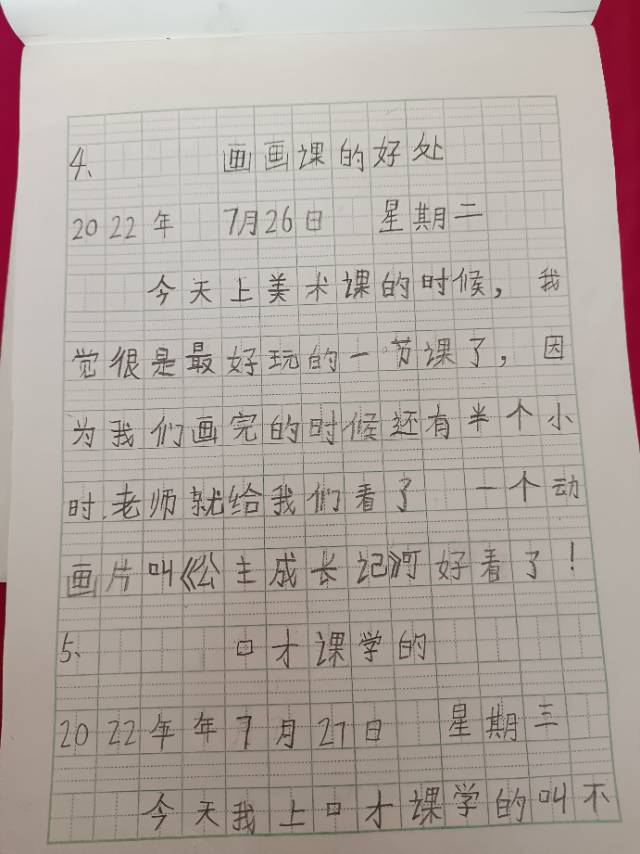 4、 画画课的好处
2022年 7月26日 星期二
今天上美术课的时候，我
觉很是最好玩的一节课了，因
为我们画完的时候还有半个小
时.老师就给我们看了 一个动
画片叫《公主成长记》可好看了！
5、 口才课学的
2022年年7月27日 星期三
今天我上口才课学的叫不